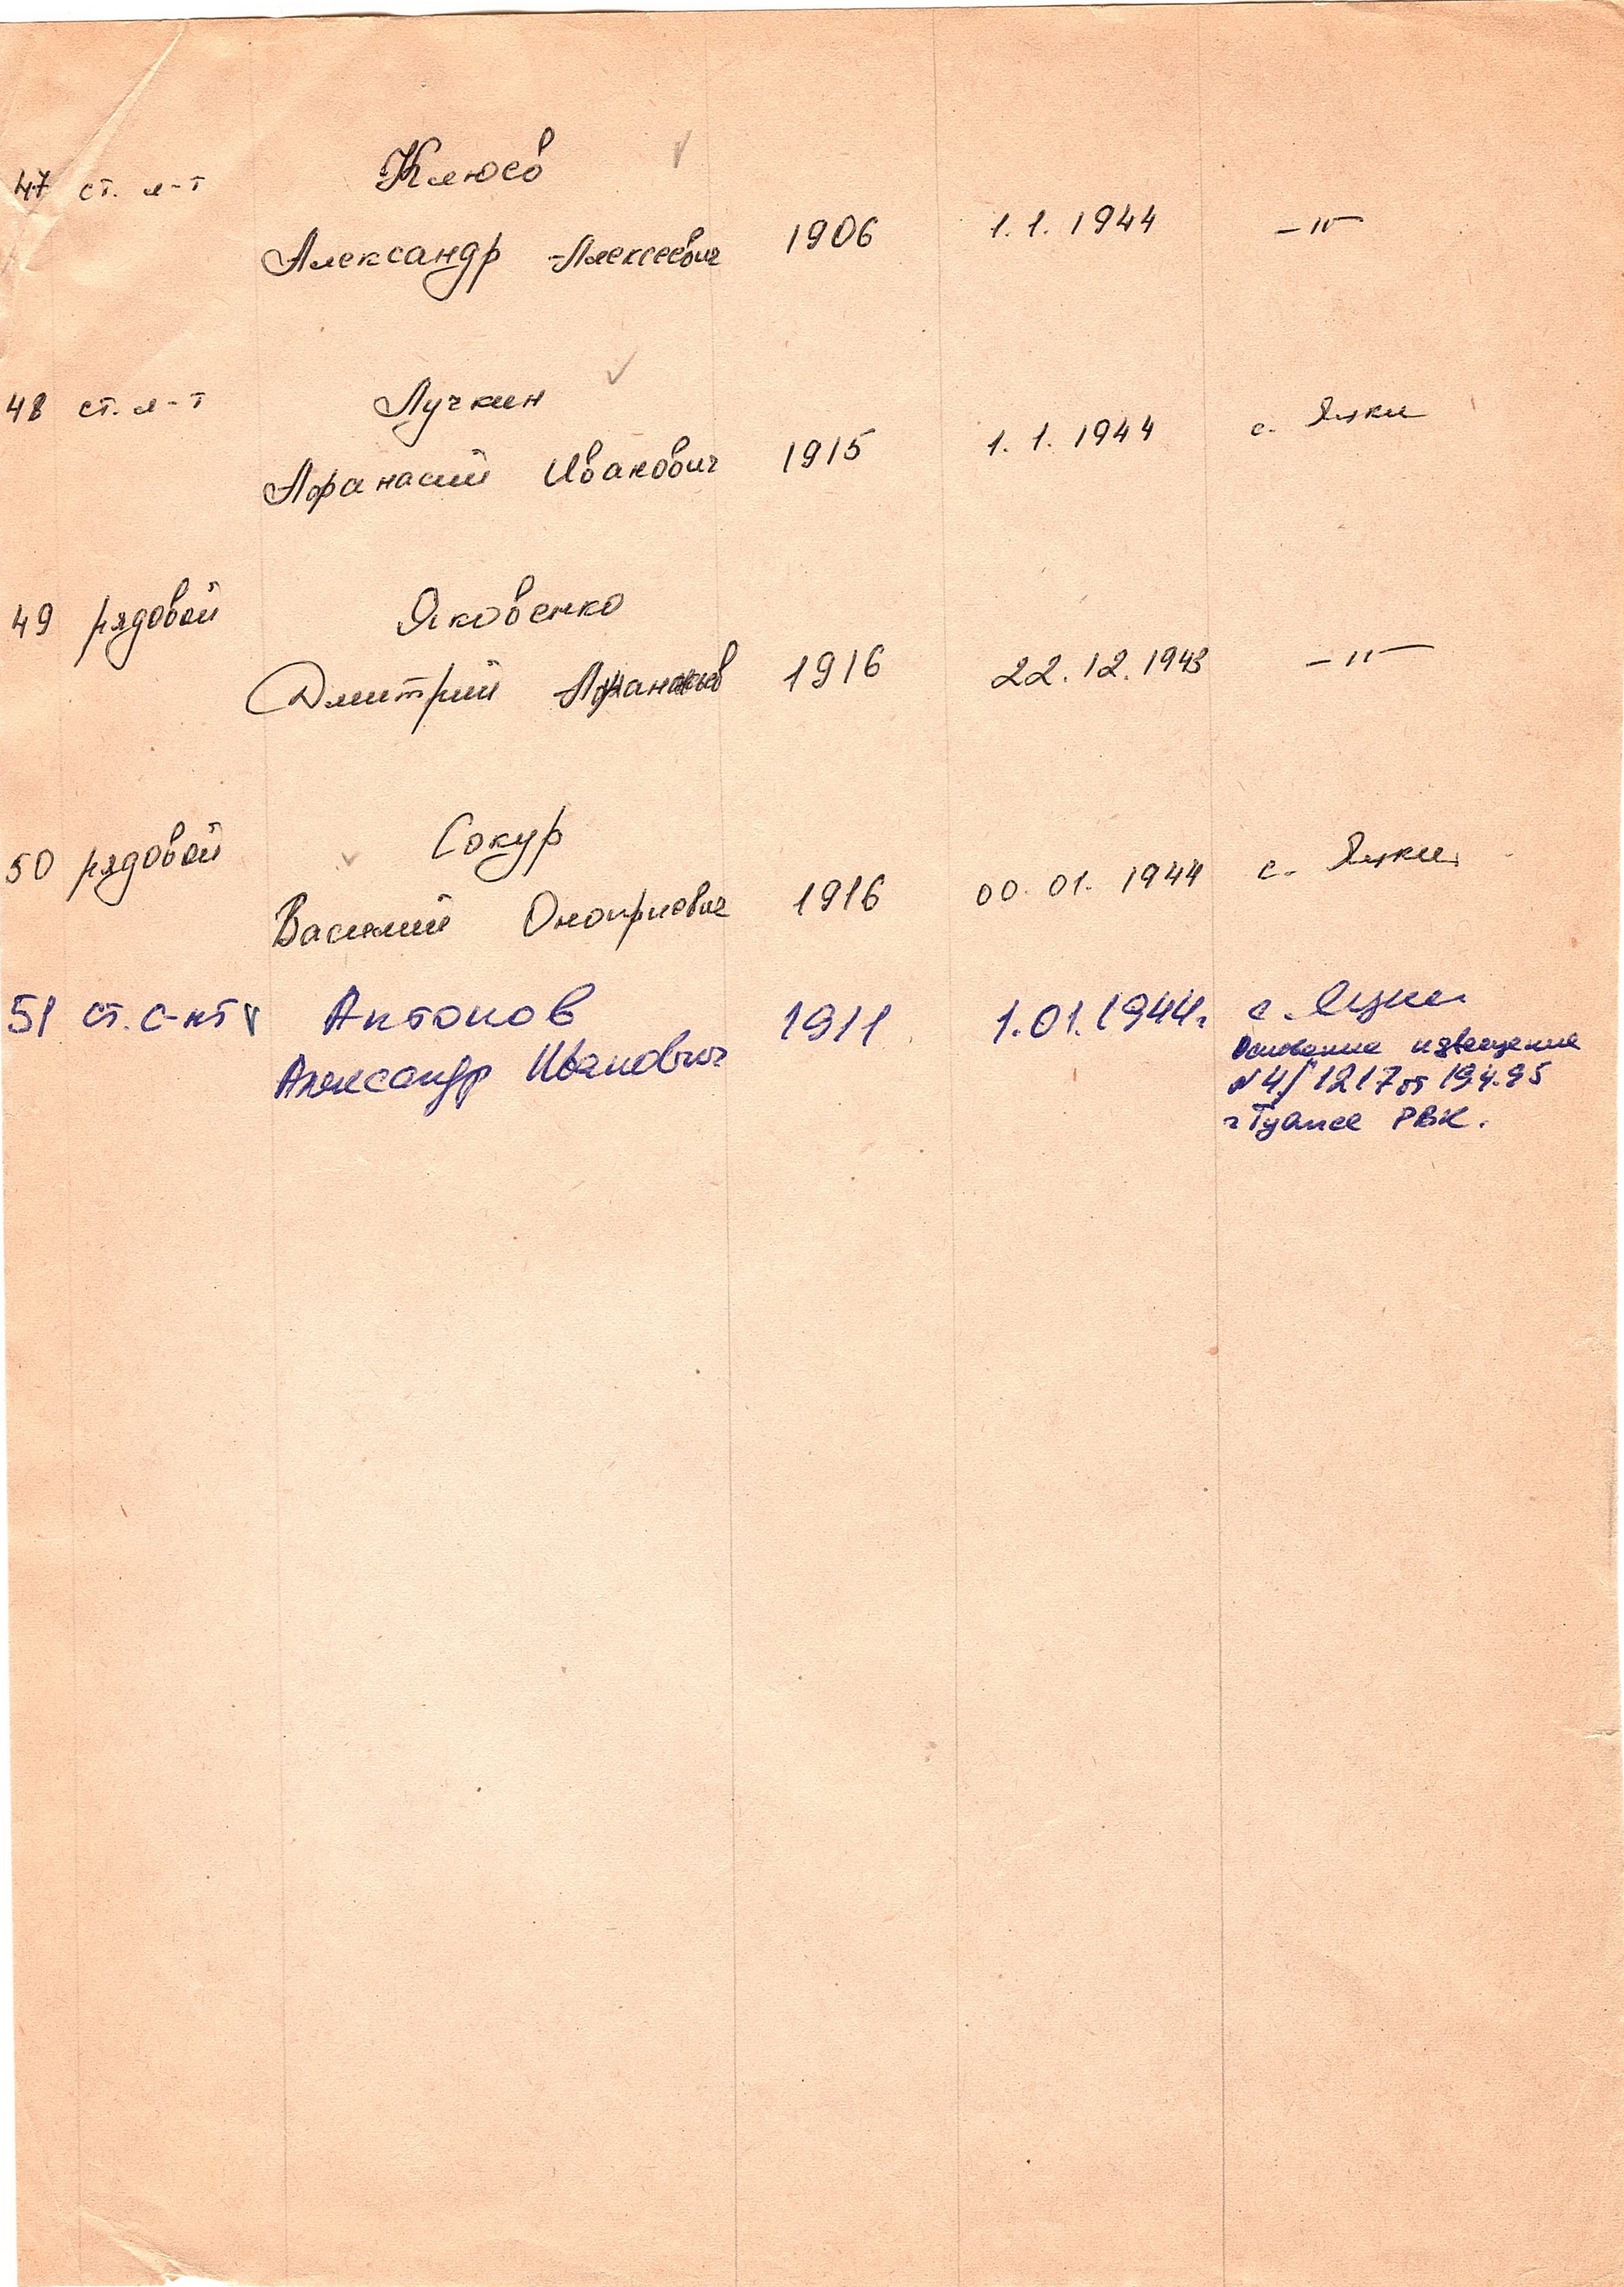 47 ст. л-т Клюев
Александр Алексеевич 1906 1.1.1944 -"-
48 ст. л-т Лучкин
Афанасий Иванович 1915 1.1.1944 с. Яцки
49 рядовой Яковенко
Дмитрий 1916 22.12.1943 -"-
50 рядовой Сокур
Василий Оноприевич 1916 00.01.1944 с. Яцки
51 ст. с-нт Антонов 1911 1.01.1944г с. Яцки
Александр Иванович
Основание извещение
№4/1217 от 19.4.95
г Туапсе РВК.